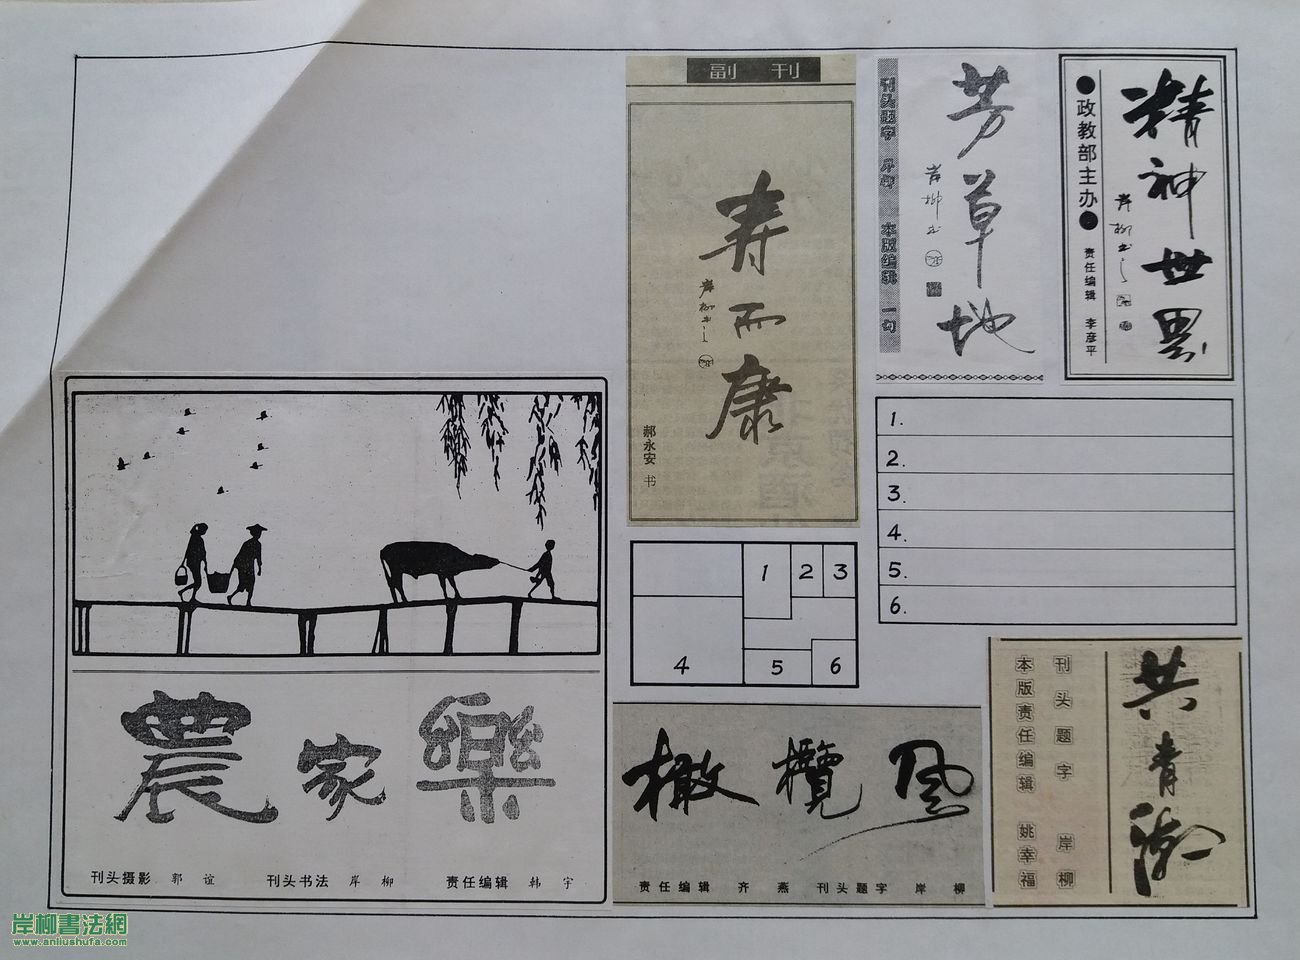 副 刊
寿而康
岸柳书
郝永安 书
芳草地
岸柳书
刊头题字 岸柳 本版编辑 一勾
精神世界
岸柳书
●政教部主办●
责任编辑 李彦平
1.
2.
3.
4.
5.
6.
1 2 3
4 5 6
農家樂
刊头摄影 郭谊 刊头书法 岸柳 责任编辑 韩宇
橄欖风
责任编辑 齐燕 刊头题字 岸柳
共青潮
刊头题字 岸柳
本版责任编辑 姚幸福
岸柳書法網
www.anliushufa.com